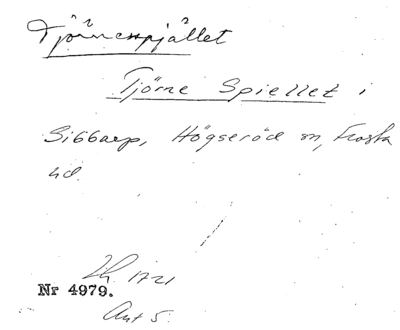 Tjörnespjället
Tjörne Spiellet i
Sibbarp, Högseröd sn, Frosta
hd
Lh 1721
Nr 4979.
Ant 5.